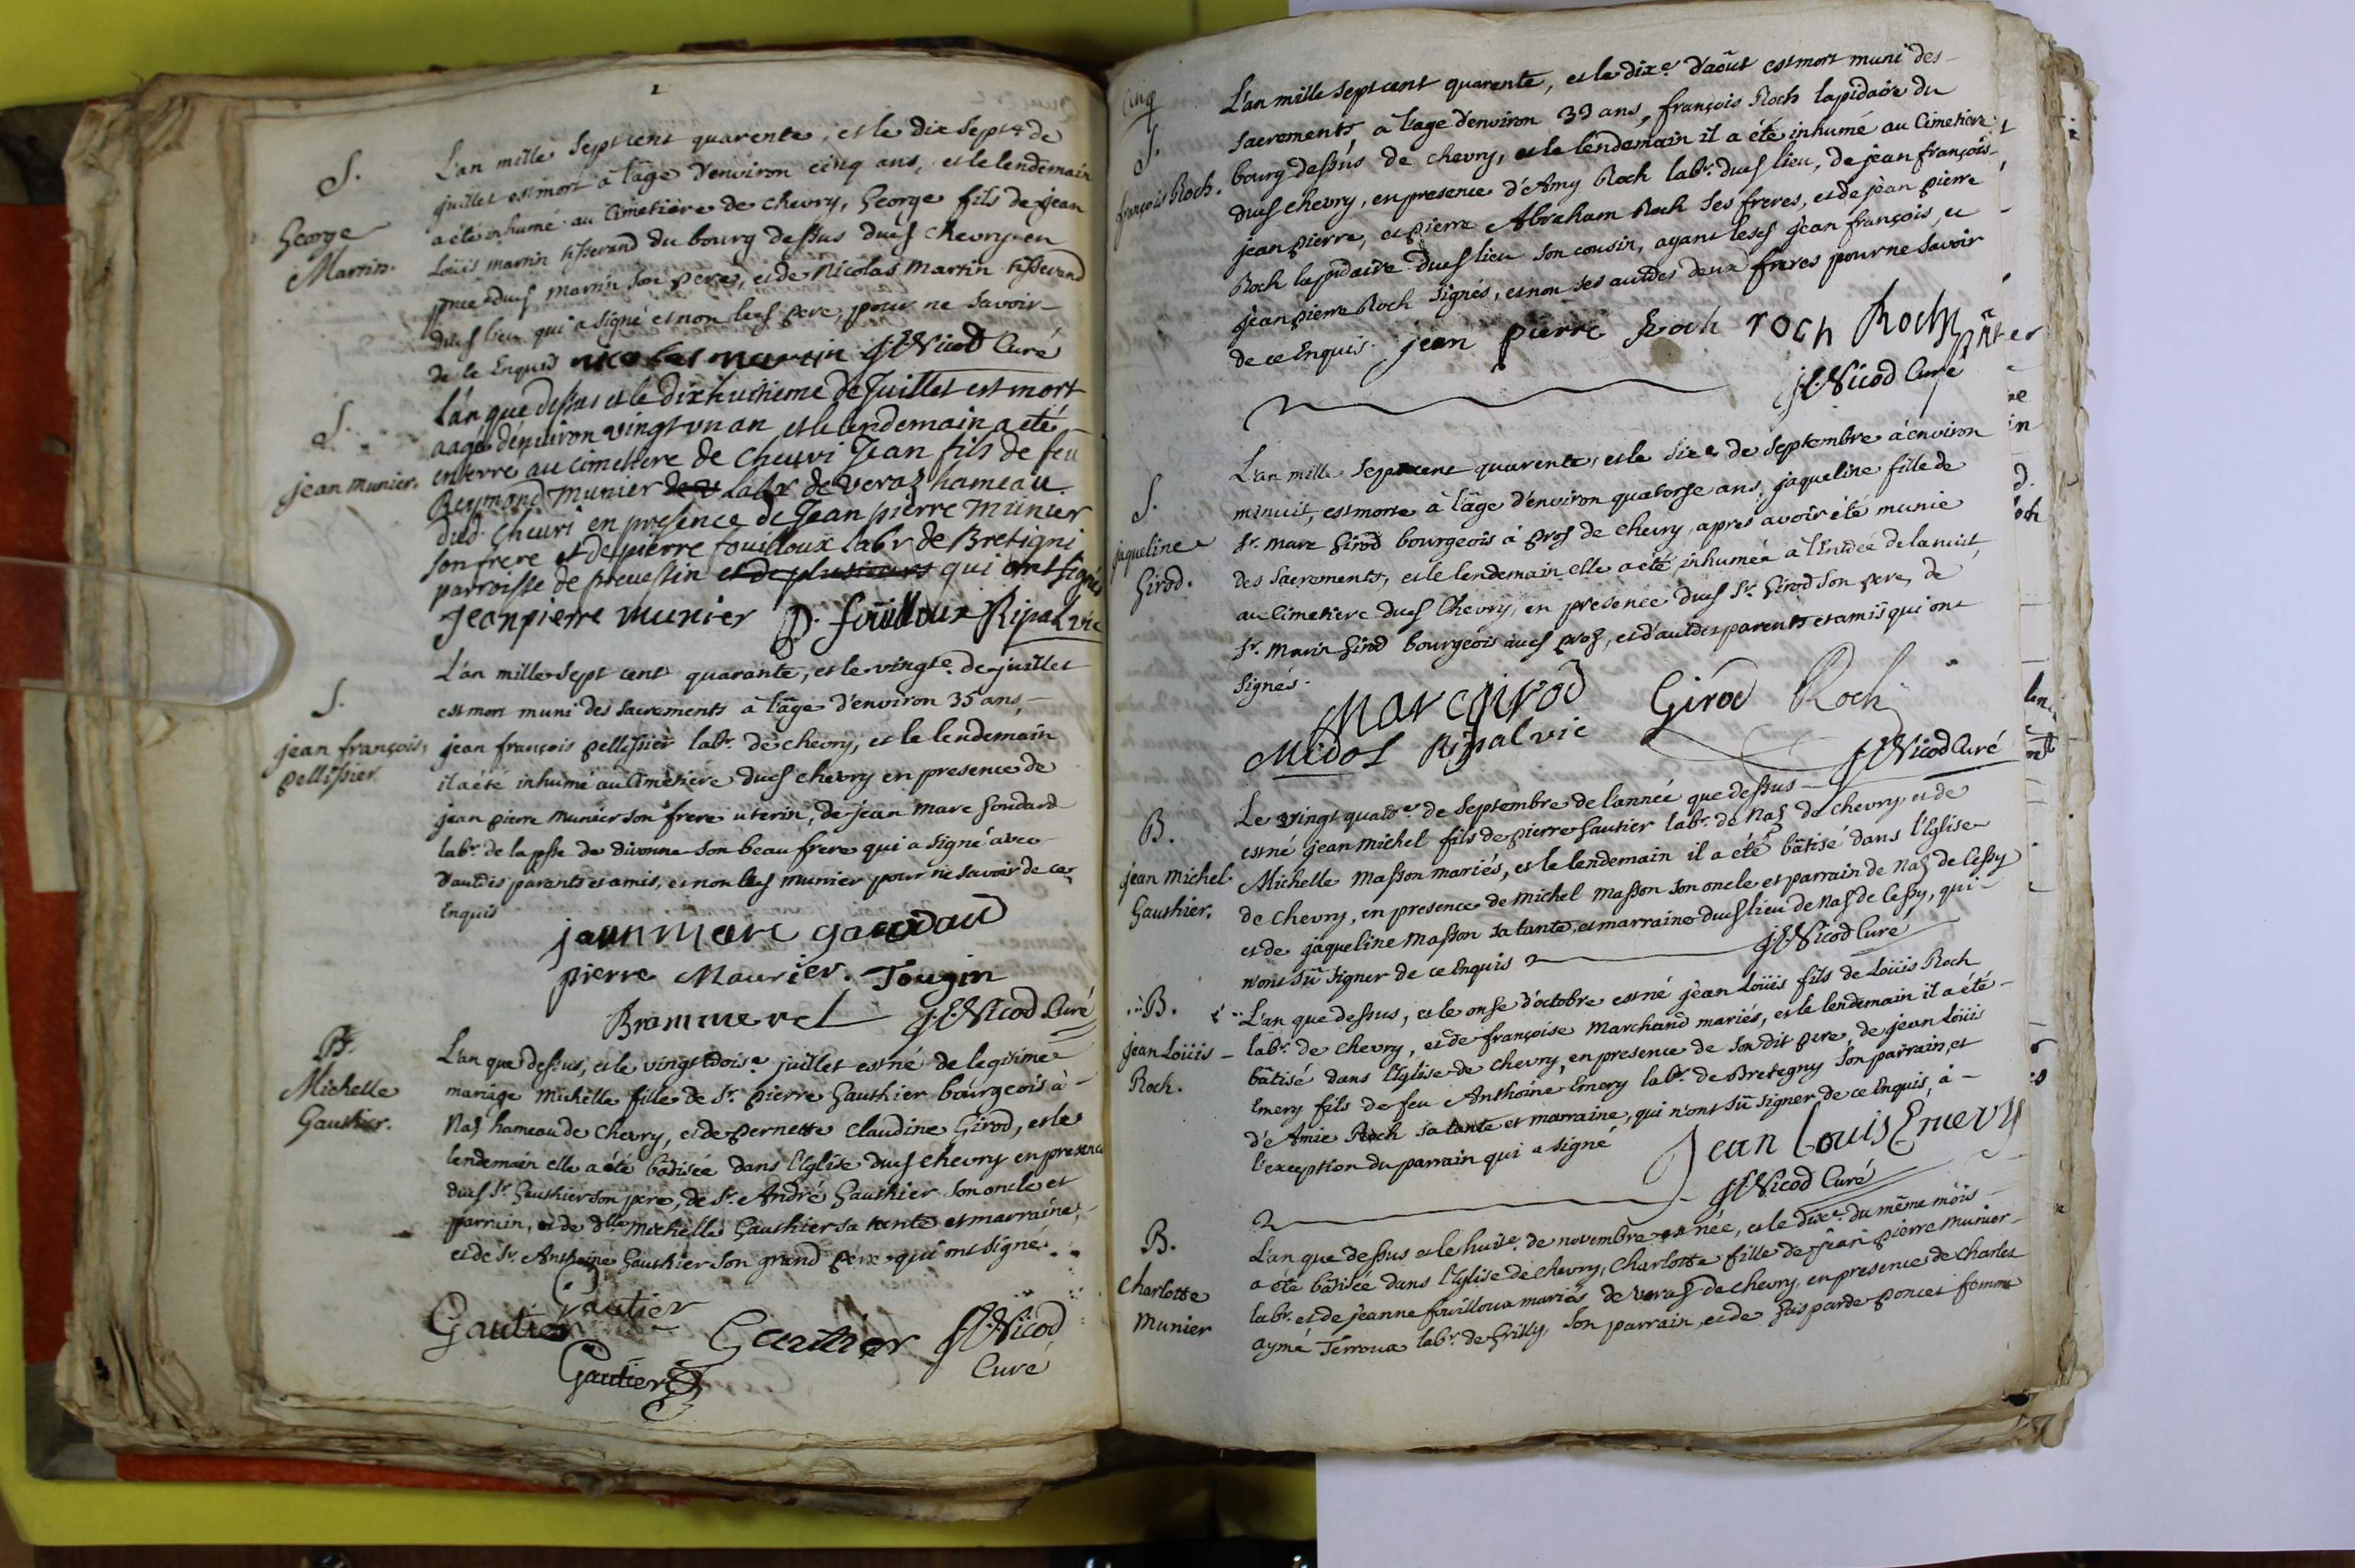 S.
George
Martin.
L'an mille sept cent quarente, et le dix sept.e de
juillet est mort a l'age d'environ cinq ans, et le lendemain
a eté inhumé au Cimetiere de chevry, George fils de jean
Loüis martin tisserand du bourg dessus dud chevry en
pnce dud martin son pere, et de Nicolas Martin tisserand
dud lieu qui a signé et non led pere, pour ne savoir
de ce Enquis nicolas martin Nicod Curé
S.
jean munier.
l'an que dessus et le dixhuitieme de Juillet est mort
aagé d'environ vingt un an et le lendemain a eté
enterre au cimettere de cheuri Jean fils de feu
Reymand Munier de v labr de veraz hameau
dud. Cheuri en presence de Jean pierre Munier
son frere et de pierre fouilloux labr de Bretigni
parroisse de preuessin et de plusieurs qui ont signés
Jean pierre munier P. foüilloux Ripal vic
S.
jean françois
pellissier
L'an mille sept cent quarante, et le vingt.e de juillet
est mort muni des sacrements à l'age d'environ 35 ans,
jean françois pellissier labr. de chevry, et le lendemain
il a été inhumé au Cimetiere dud chevry en presence de
jean pierre munier son frere uterin, de jean marc Gondard
labr. de la psse de divonne son beau frere qui a signé avec
d'autres parents et amis, et non led munier pour ne savoir de ce
Enquis
jean marc
pierre Maurier. Tougin
Nicod Curé
B.
Michelle
Gauthier.
L'an que dessus, et le vingt troise. juillet est né de legitime
mariage michelle fille de Sr. pierre Gauthier bourgeois à
Naz hameau de chevry, et de pernette Claudine Girod, et le
lendemain elle a été batisée dans l'Eglise dud chevry en presence
dud Sr. Gauthier son pere, de Sr. André Gauthier son oncle et
parrain, et de dlle michelle Gauthier sa tante et marraine,
et de Sr. Anthoine Gauthier son grand pere qui ont signé.
Gautier
Gautier Gauthier Nicod
Gautier Curé
Cinq
S.
françois Roch.
L'an mille sept cent quarente, et le dixe. d'août est mort muni des
sacrements a l'age d'environ 33 ans, françois Roch lapidaire du
bourg dessus de chevry, et le lendemain il a été inhumé au Cimetiere
dud chevry, en presence d'Amy Roch labr. dud lieu, de jean françois
jean pierre, et pierre Abraham Roch ses freres, et de jean pierre
Roch lapidaire dud lieu son cousin, ayant lesd jean françois, et
jean pierre Roch signés, et non ses autres deux freres pour ne savoir
de ce Enquis. jean pierre Roch roch Roch
Nicod Curé
S.
jaqueline
Girod.
L'an mille sept cent quarente, et le sixe de septembre à environ
minuit, est morte à l'age d'environ quatorse ans, jaqueline fille de
Sr. marc Girod bourgeois à proz de chevry, apres avoir été munie
des sacrements, et le lendemain elle a été inhumée à l'entrée de la nuit,
au Cimetiere dud Chevry, en presence dud Sr. Girod son pere, de
Sr. marin Girod bourgeois aud proz, et d'autres parents et amis qui ont
signés.
Marc girod Girod Roch
Ripal vic
Nicod Curé
B.
jean michel
Gauthier.
Le vingt quatre. de septembre de l'année que dessus
est né jean michel fils de pierre Gautier labr. de Naz de chevry, et de
Michelle masson mariés, et le lendemain il a été bâtisé dans l'Eglise
de chevry, en presence de michel masson son oncle et parrain de Naz de Cessy
et de jaqueline masson sa tante, et marraine dud lieu de Naz de Cessy, qui
n'ont sû signer de ce Enquis Nicod Curé
B.
jean Loüis
Roch.
L'an que dessus, et le onse d'octobre est né jean Loüis fils de Loüis Roch
labr. de chevry, et de françoise marchand mariés, et le lendemain il a été
bâtisé dans l'Eglise de chevry, en presence de son dit pere, de jean Loüis
Emery fils de feu Anthoine Emery labr. de Bretegny son parrain, et
d'Amie Roch sa tante et marraine, qui n'ont sû signer de ce Enquis, à
l'exception du parrain qui a signé Jean Louis Emery
Nicod Curé
B.
Charlotte
Munier
L'an que dessus et le huite. de novembre est née, et le dixe. du même mois
a été batisée dans l'Eglise de chevry, Charlotte fille de jean pierre munier
labr. et de jeanne fouilloux mariés de veraz de chevry, en presence de Charles
aymé Terroux labr. de Grilly, son parrain, et de Gasparde poncet femme